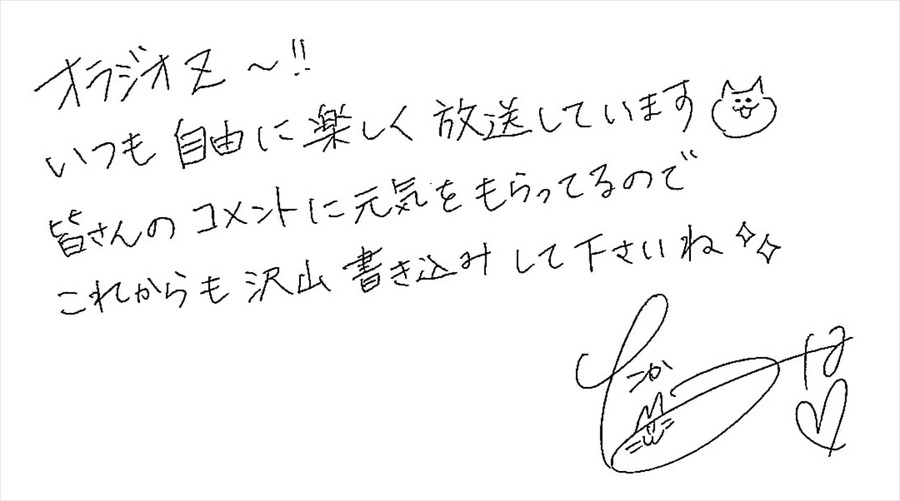 オラジオZ〜!!
いつも自由に楽しく放送しています
皆さんのコメントに元気をもらってるので
これからも沢山書き込みして下さいね